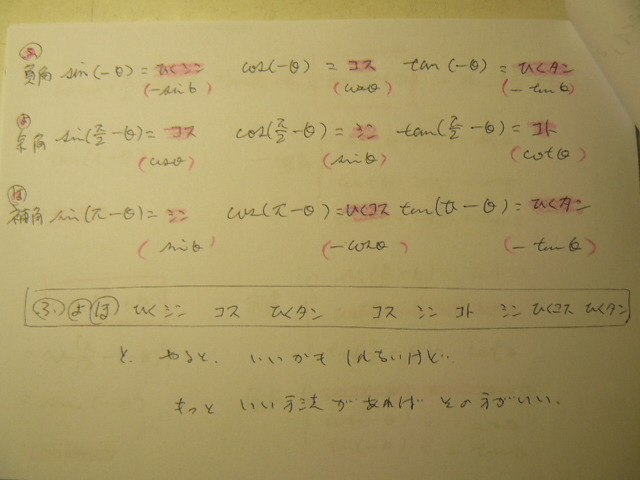 ふ
負角 sin(-θ) = ひくシン cos(-θ) = コス tan(-θ) = ひくタン
(-sinθ) (cosθ) (-tanθ)
よ
余角 sin(π/2-θ) = コス cos(π/2-θ) = シン tan(π/2-θ) = コト
(cosθ) (sinθ) (cotθ)
ほ
補角 sin(π-θ) = シン cos(π-θ) = ひくコス tan(π-θ) = ひくタン
(sinθ) (-cosθ) (-tanθ)
ふ よ ほ ひくシン コス ひくタン コス シン コト シン ひくコス ひくタン
と、やると、いいかもしれないけど…
もっといい方法があればその方がいい.